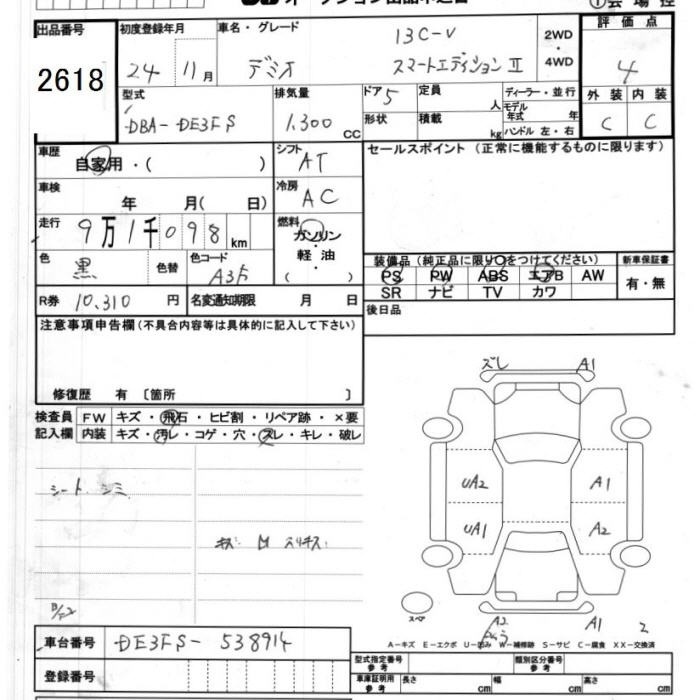 出品番号 2618
初度登録年月 24 11月
車名・グレード デミオ 13C-V スマートエディションⅡ
2WD・4WD
評価点 4
外装 C 内装 C
型式 DBA-DE3FS
排気量 1,300 CC
ドア 5 形状
定員 人 積載 kg
ディーラー・並行
モデル年式 年
ハンドル 左・右
車歴 自家用・( )
シフト AT
車検 年 月( 日)
冷房 AC
走行 9万1千098 km
燃料 ガソリン・軽油 ( )
色 黒 色替 色コード A3F
R券 10,310 円 名変通知期限 月 日
セールスポイント (正常に機能するものに限ります)
装備品 (純正品に限り○をつけてください) 新車保証書
PS PW ABS エアB AW 有・無
SR ナビ TV カワ
後日品
注意事項申告欄 (不具合内容等は具体的に記入して下さい)
修復歴 有 〔箇所 〕
検査員 FW キズ・飛石・ヒビ割・リペア跡・×要
記入欄 内装 キズ・汚レ・コゲ・穴・ズレ・キレ・破レ
シート シミ
ズレ A1
UA2 A1
UA1 A2
スペア
A2 A1 2
A-キズ E-エクボ U-凹み W-補修跡 S-サビ C-腐食 XX-交換済
車台番号 DE3FS-538914
登録番号
型式指定番号 参考 類別区分番号 参考
車庫証明用 参考 長さ cm 幅 cm 高さ cm